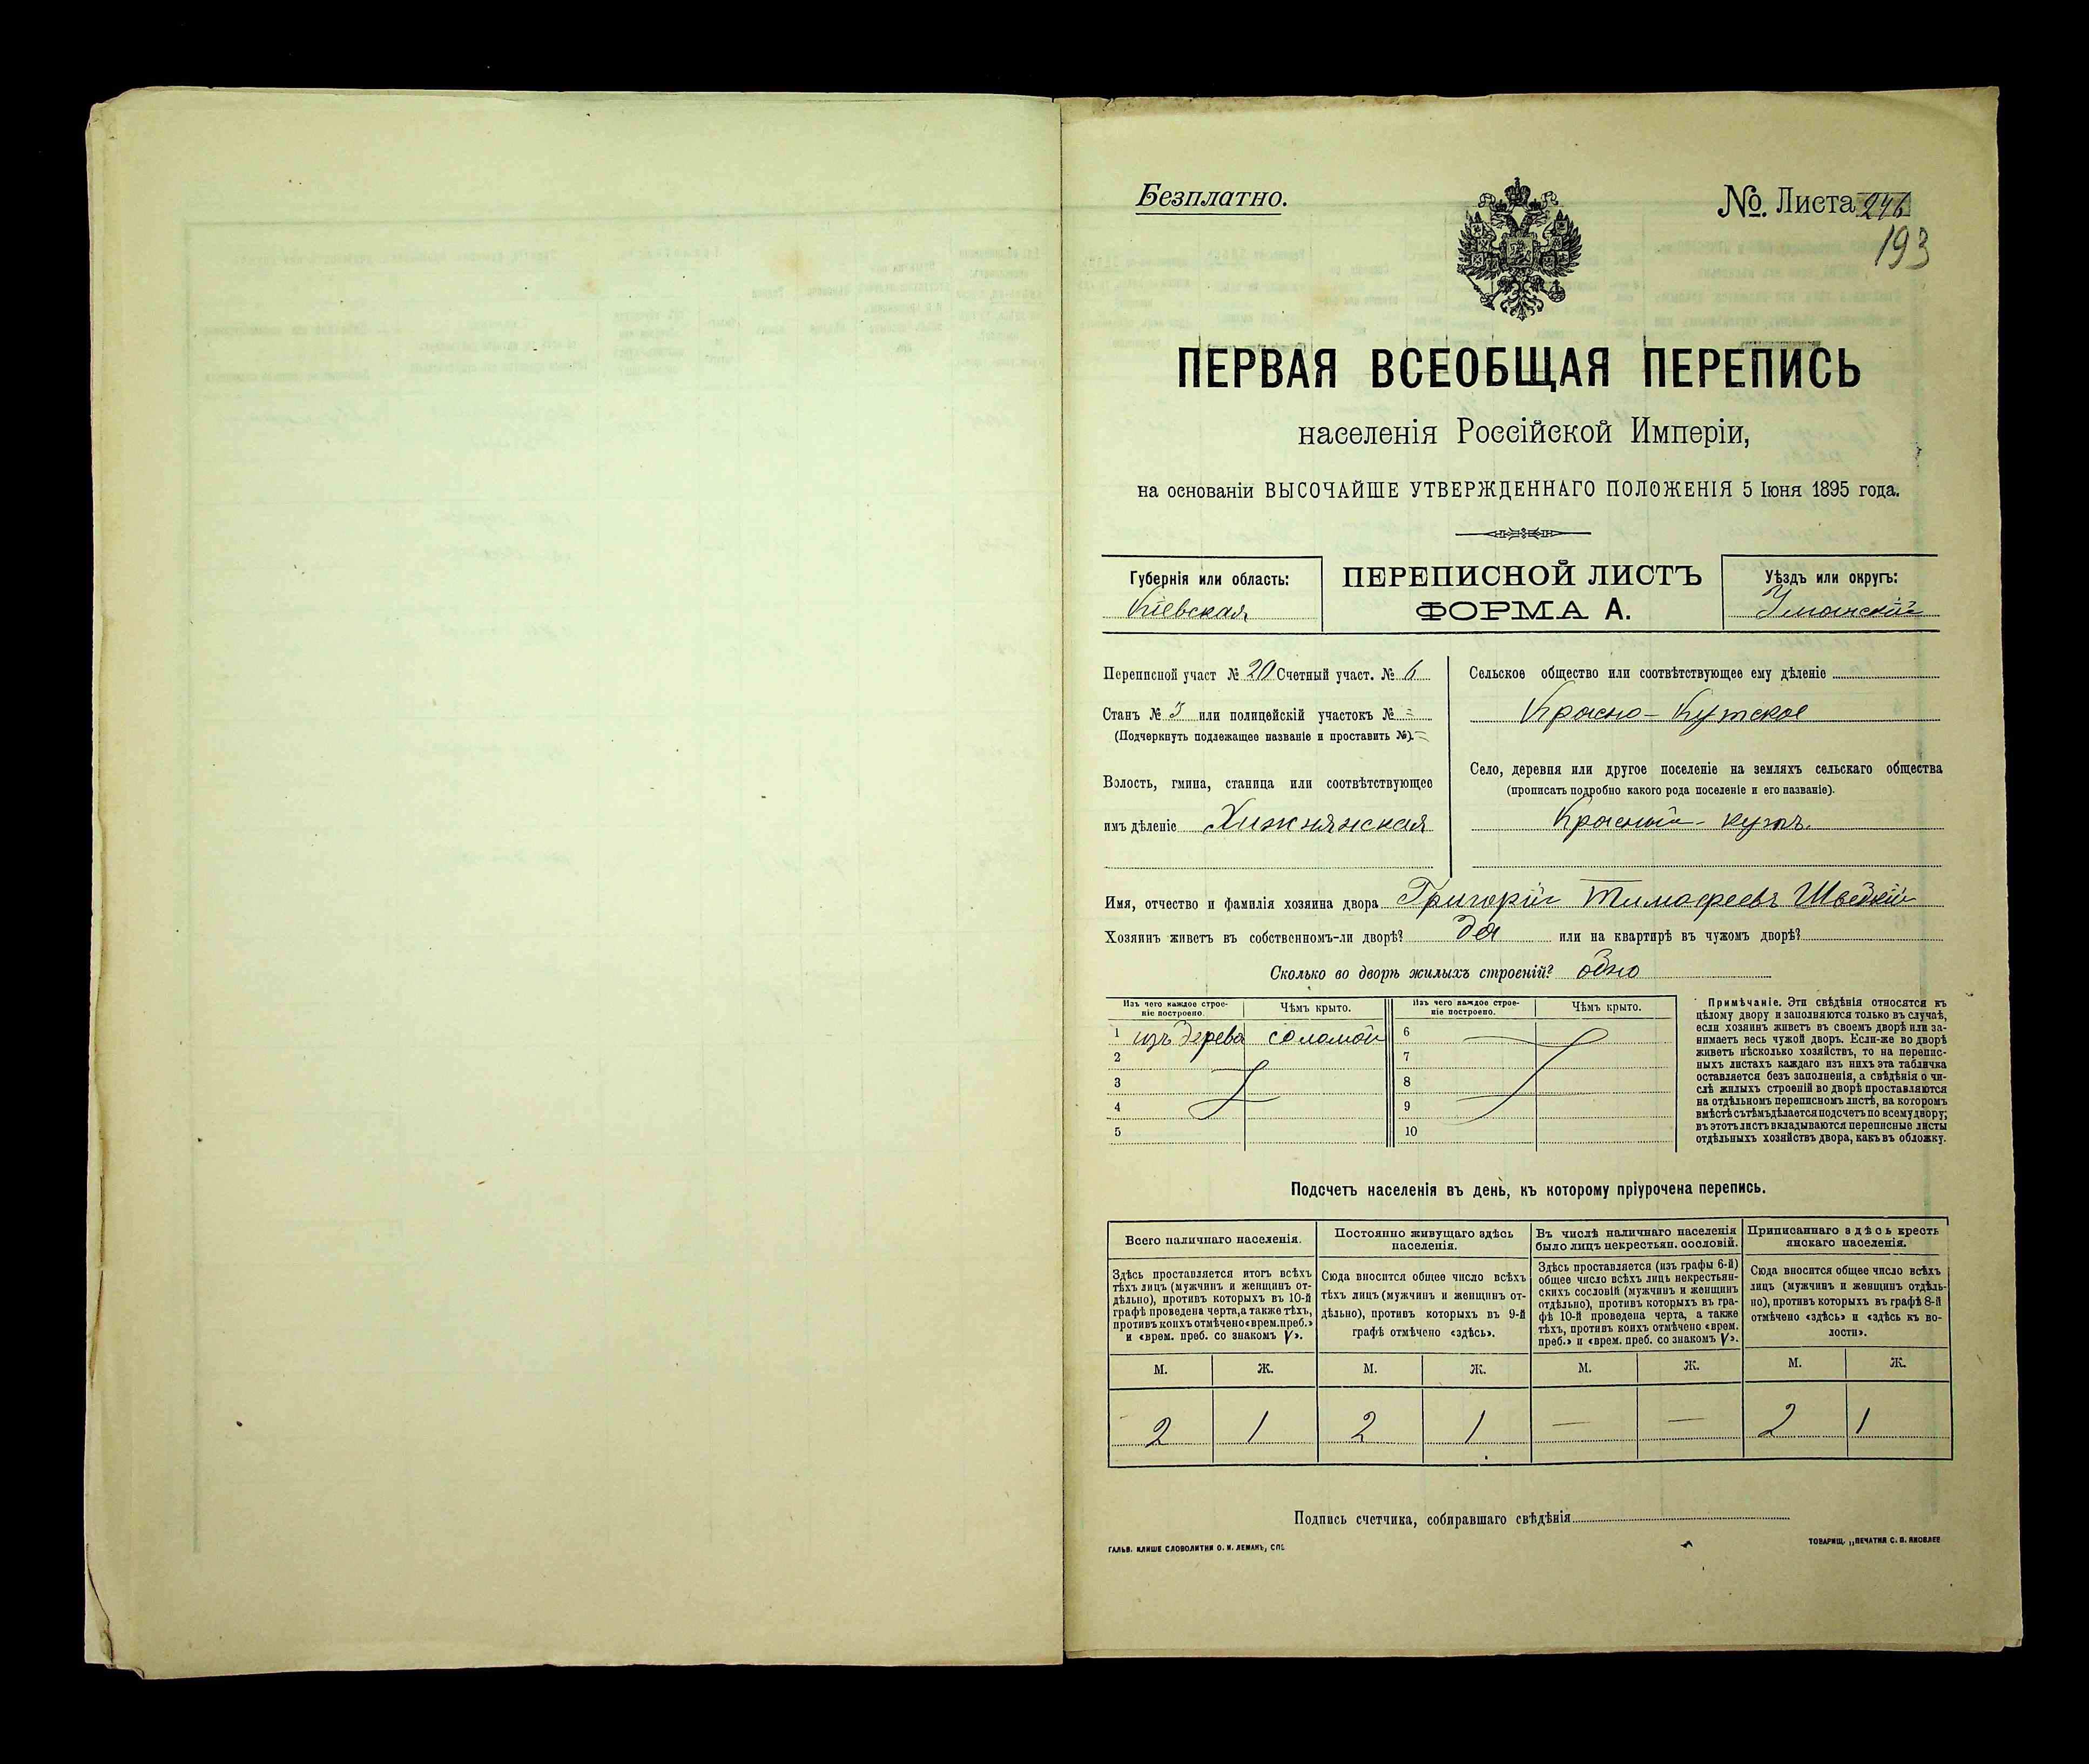 Безплатно.
№. Листа 246
193
ПЕРВАЯ ВСЕОБЩАЯ ПЕРЕПИСЬ
населенія Россійской Имперіи,
на основаніи ВЫСОЧАЙШЕ УТВЕРЖДЕННАГО ПОЛОЖЕНІЯ 5 Іюня 1895 года.
Губернія или область:
Кіевская
ПЕРЕПИСНОЙ ЛИСТЪ
ФОРМА А.
Уѣздъ или округъ:
Уманскій
Переписной участ № 20 Счетный участ. № 6
Станъ № 3 или полицейскій участокъ № =
(Подчеркнуть подлежащее названіе и проставить №). =
Волость, гмина, станица или соотвѣтствующее
имъ дѣленіе Хижнянская
Сельское общество или соотвѣтствующее ему дѣленіе
Красно-Кутское
Село, деревня или другое поселеніе на земляхъ сельскаго общества
(прописать подробно какого рода поселеніе и его названіе).
Красный-кутъ.
Имя, отчество и фамилія хозяина двора Григорій Тимофеевъ
Хозяинъ живетъ въ собственномъ-ли дворѣ? да или на квартирѣ въ чужомъ дворѣ?
Сколько во дворѣ жилыхъ строеній? одно
Изъ чего каждое строе-
ніе построено.
Чѣмъ крыто.
Изъ чего каждое строе-
ніе построено.
Чѣмъ крыто.
1 изъ дерева соломой 6
2 7
3 8
4 9
5 10
Примѣчаніе. Эти свѣдѣнія относятся къ
цѣлому двору и заполняются только въ случаѣ,
если хозяинъ живетъ въ своемъ дворѣ или за-
нимаетъ весь чужой дворъ. Если-же во дворѣ
живетъ нѣсколько хозяйствъ, то на перепис-
ныхъ листахъ каждаго изъ нихъ эта табличка
оставляется безъ заполненія, а свѣдѣнія о чи-
слѣ жилыхъ строеній во дворѣ проставляются
на отдѣльномъ переписномъ листѣ, на которомъ
вмѣстѣ съ тѣмъ дѣлается подсчетъ по всему двору;
въ этотъ листъ вкладываются переписные листы
отдѣльныхъ хозяйствъ двора, какъ въ обложку.
Подсчетъ населенія въ день, къ которому пріурочена перепись.
Всего наличнаго населенія.
Здѣсь проставляется итогъ всѣхъ
тѣхъ лицъ (мужчинъ и женщинъ от-
дѣльно), противъ которыхъ въ 10-й
графѣ проведена черта, а также тѣхъ,
противъ коихъ отмѣчено «врем. преб.»
и «врем. преб. со знакомъ V».
Постоянно живущаго здѣсь
населенія.
Сюда вносится общее число всѣхъ
тѣхъ лицъ (мужчинъ и женщинъ от-
дѣльно), противъ которыхъ въ 9-й
графѣ отмѣчено «здѣсь».
Въ числѣ наличнаго населенія
было лицъ некрестьян. сословій.
Здѣсь проставляется (изъ графы 6-й)
общее число всѣхъ лицъ некрестьян-
скихъ сословій (мужчинъ и женщинъ
отдѣльно), противъ которыхъ въ гра-
фѣ 10-й проведена черта, а также
тѣхъ, противъ коихъ отмѣчено «врем.
преб.» и «врем. преб. со знакомъ V».
Приписаннаго здѣсь кресть
янскаго населенія.
Сюда вносится общее число всѣхъ
лицъ (мужчинъ и женщинъ отдѣль-
но), противъ которыхъ въ графѣ 8-й
отмѣчено «здѣсь» и «здѣсь къ во-
лости».
М. Ж. М. Ж. М. Ж. М. Ж.
2 1 2 1 — — 2 1
Подпись счетчика, собиравшаго свѣдѣнія
ГАЛЬВ. КЛИШЕ СЛОВОЛИТНИ О. И. ЛЕМАНЪ, СПБ
ТОВАРИЩ. „ПЕЧАТНЯ С. П. ЯКОВЛЕВ